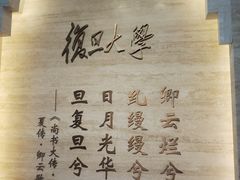 復旦大學
卿云烂兮
乣缦缦兮
日月光华
旦复旦兮
——《尚书大传·
夏传·卿云